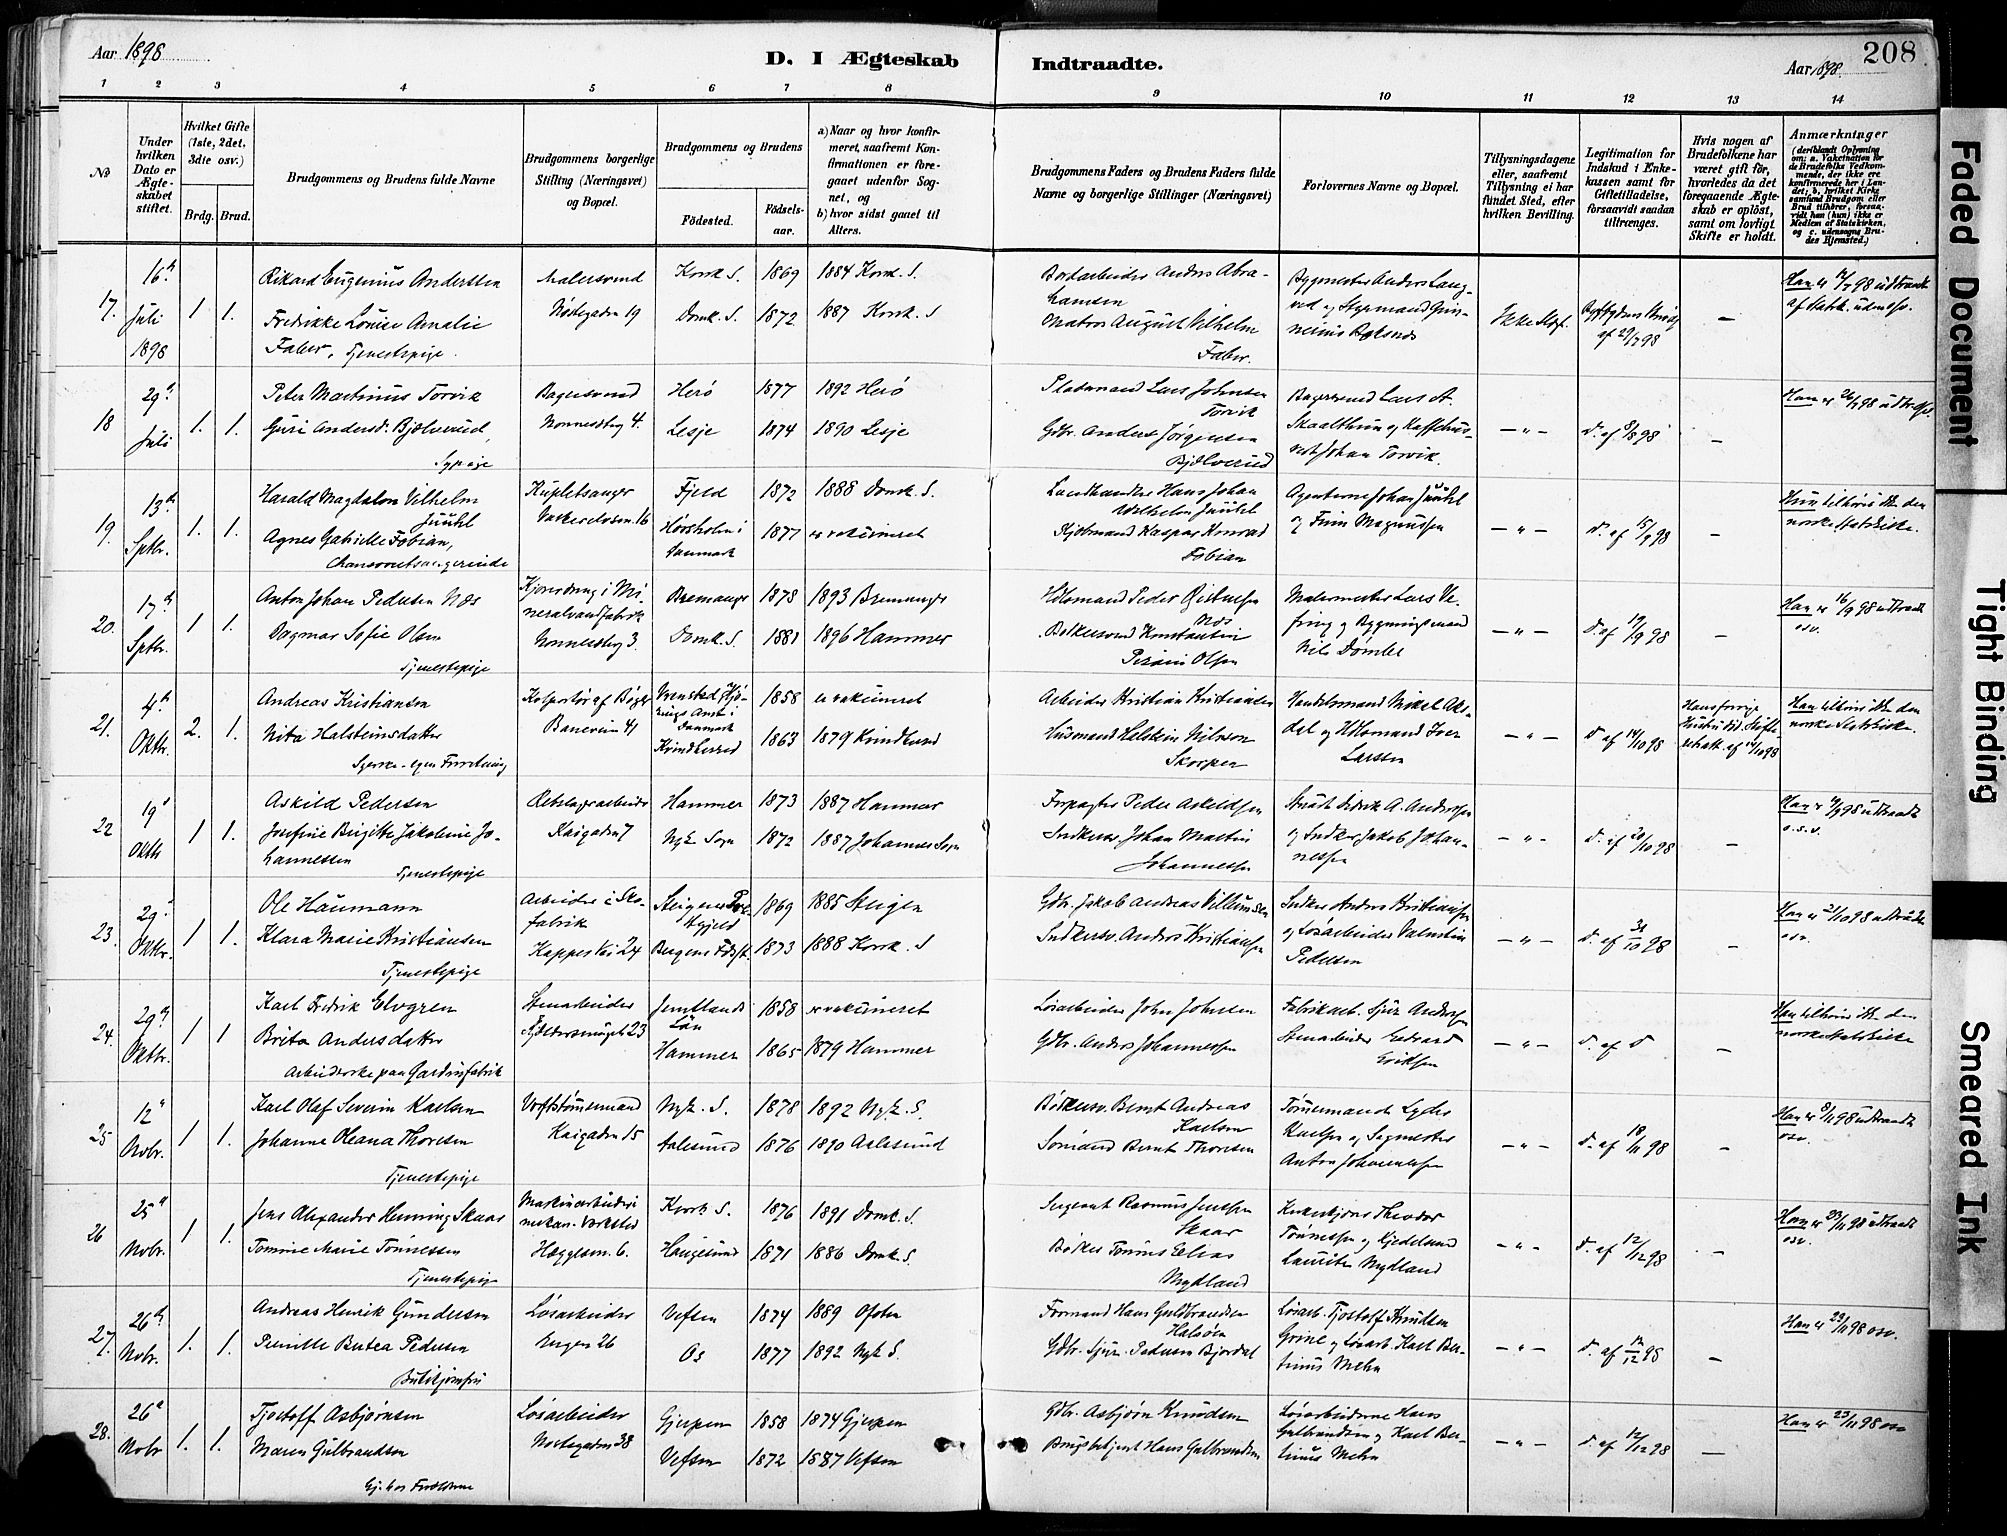 Aar 1898
D. I Ægteskab Indtraadte.
Aar 1898.
208
1 2 3 4 5 6 7 8 9 10 11 12 13 14
No
Under hvilken Dato er Ægteskabet stiftet.
Hvilket Gifte (1ste, 2det, 3die osv.)
Brdg. Brud.
Brudgommens og Brudens fulde Navne
Brudgommens borgerlige Stilling (Næringsvei) og Bopæl.
Brudgommens og Brudens
Fødested.
Fødselsaar.
a) Naar og hvor konfirmeret, saafremt Konfirmationen er foregaaet udenfor Sognet, og
b) hvor sidst gaaet til Alters.
Brudgommens Faders og Brudens Faders fulde Navne og borgerlige Stillinger (Næringsvei)
Forlovernes Navne og Bopæl.
Tillysningsdagene eller, saafremt Tillysning ei har fundet Sted, efter hvilken Bevilling.
Legitimation for Indskud i Enkekassen samt for Giftetilladelse, forsaavidt saadan tiltrænges.
Hvis nogen af Brudefolkene har været gift før, hvorledes da det foregaaende Ægteskab er opløst, samt om lovligt Skifte er holdt.
Anmærkninger
(deriblandt Oplysning om: a. Vakcination for de Brudefolks Vedkommende, der ikke ere konfirmerede her i Landet; b. hvilket Kirkesamfund Brudgom eller Brud tilhører, forsaavidt han (hun) ikke er Medlem af Statskirken, og c. udensogns Brudes Hjemsted.)
17. 16de Juli 1898 1. 1.
Rikard Eugenius Anderssen
Fredrikke Louise Amalie
Faber, Tjenestepige.
Malersvend
Nøstegaden 19
Korsk. S. 1869 1884 Korsk. S.
Domk. S. 1872 1887 Korsk. S
Bordarbeider Anders Abrahamsen
Matros August Vilhelm
Faber.
—
Han er 12/7 98 udtraadt
18 29 Juli 1. 1.
Peter Martinus Torvik
Guri Andersd. Bjølverud,
Sypige
Bagersvend
Nonnesdtbg 4.
Herø 1877 1892 Herø
Lesje 1874 1890 Lesje
Lars Johnsen
Torvik
Gdbr. Anders Jørgensen
Bjølverud
Bagersvend Lars A.
Johan Torvik.
— " — d. af 8/8 98 —
19. 13de Sptbr. 1. 1.
Harald Magdalon Vilhelm
Juuhl
Agnes Gabrielle Fabian,
Chansonetsangerinde
Kupletsanger
16
Fjeld 1872 1888 Domk. S.
Hörsholm i
Danmark 1877 er vakcineret
Landhandler Hans Johan
Wilhelm Juuhl
Kjøbmand Kaspar Konrad
Fabian
Agenterne Johan Juuhl
og Finn Magnussen
— " — d. af 15/9 98 —
Hun tilhører ikke den
norske Statskirke.
20. 17de Sptbr. 1 1.
Anton Johan Pedersen Næs
Dagmar Sofie Olsen
Tjenestepige
Mineralvandfabrik
Nonnesdtbg 3.
Bremanger 1878 1893 Bremanger
Domk. S. 1881 1896 Hammer
Næs
Bødkersvend Konstantin
Olsen
Malermester Lars
og Bygningsmand
Nils Dombe
— " — d. af 17/9 98 —
Han er 16/9 98 udtraadt
osv.
21. 4de Oktbr. 2. 1.
Andreas Kristiansen
Nita Halsteinsdatter
Syerske - egen Forretning
Kolportør af Bøger
Baneveien 41
Vrensted Hjørings Amt i
Danmark 1858 er vakcineret
Kvindherred 1863 1879 Kvindherred
Arbeider Kristian Kristiansen
Husmand Helstein Nilsson
Skorpen
Handelsmand Mikal Aksdal og Hdlsmand Iver
Larssen
— " — d. af 14/10 98
Hans forrige
Hustru død. Skifteretsatt. af 14/10 98
Han tilhører ikke den
norske Statskirke.
22 19de Oktbr 1 1.
Askild Pedersen
Josefine Birgitte Jakobine Johannessen
Tjenestepige
Rebslagerarbeider
Kaigaden 7
Hammer 1873 1887 Hammer
Nyk. Sogn 1872 1887 Johannes Sogn
Forpagter Peder Askildsen
Johan Martin
Johannessen
A. Anderssen
og Jakob Johannessen
— " — d. af 20/10 98 —
udtraadt
o.s.v.
23. 29de Oktbr. 1 1.
Ole Haumann
Klara Marie Kristiansen
Tjenestepige
Arbeider i Skofabrik
Kappes Vei 24
1869 1885 Steigen
Bergens Fødst. 1873 1888 Korsk. S
Gdbr. Jakob Andreas Villumsen
Anders Kristiansen
Anders Kristiansen
og Løsarbeider Valentin
Pedersen
— " — d. af 31/10 98 —
Han er 21/10 98 udtraadt
osv.
24. 29de Oktbr. 1 1
Karl Fredrik Elvgren
Brita Andersdatter
Arbeiderske paa Gardinfabrik
Stenarbeider
23
Jemtlands
Län 1858 er vakcineret
Hammer 1865 1879 Hammer
Løsarbeider John Johnsen
Gdbr. Anders Johannessen
Fabrikarb. Sjur Andersen
Stenarbeider Edvard
Eriksen
— " — d. af d —
Han tilhører ikke den
norske Statskirke
25 12te Novbr. 1 1.
Karl Olaf Severin Karlsen
Johanne Oleana Thoresen
Tjenestepige
Værftstømmermand
Kaigaden 15
Nyk. S. 1878 1892 Nyk. S.
Aalesund 1876 1890 Aalesund
Bødkersv. Bernt Andreas
Karlsen
Sømand Bernt Thoresen
Tømmermand Lyder
Karlsen og Sagmester
Anton Johannessen
— " — d. af 18/11 98 —
Han er 8/11 98 udtraadt
osv.
26 25de Novbr. 1 1.
Jens Alexander Henning Skaar
Tomine Marie Tønnessen
Tjenestepige
Maskinarbeider i
mekan. Værksted
Hæggelsm. 6.
Korsk. S. 1876 1891 Domk. S.
Haugesund 1871 1886 Domk. S.
Sergeant Rasmus Jenssen
Skaar
Bødker Tønnes Elias
Mydland
Theodor
Tønnessen og
Lauritz Mydland
— " — d. af 12/12 98 —
Han er 23/11 98 udtraadt
osv.
27. 26de Novbr. 1. 1.
Andreas Henrik Gundersen
Pernille Butea Pedersen
Butikjomfru
Løsarbeider
Engen 26
Vefsen 1874 1889 Ofoten
Os 1877 1892 Nyk S.
Formand Hans Guldbrandsen
Halsøen
Gdbr. Sjur Pedersen Bjordal
Løsarb. Tjostolf Knudsen
Grine og Løsarb. Karl Bertinius Mehn
— " — d. af 12/12 98 —
Han er 23/11 98 osv.
28. 26de Novbr 1. 1.
Tjostolf Asbjørnsen
Maren Gulbrandsen
Løsarbeider
Nøstegaden 38
Gjerpen 1858 1874 Gjerpen
Vefsen 1872 1887 Vefsen
Gdbr. Asbjørn Knudsen
Brugsbetjent Hans Gulbrandsen
Løsarbeiderne Hans
Gulbrandsen og Karl Bertinius Mehn
— " — d. af 12/12 98 —
Han er 23/11 98 osv
Faded Document
Tight Binding
Smeared Ink